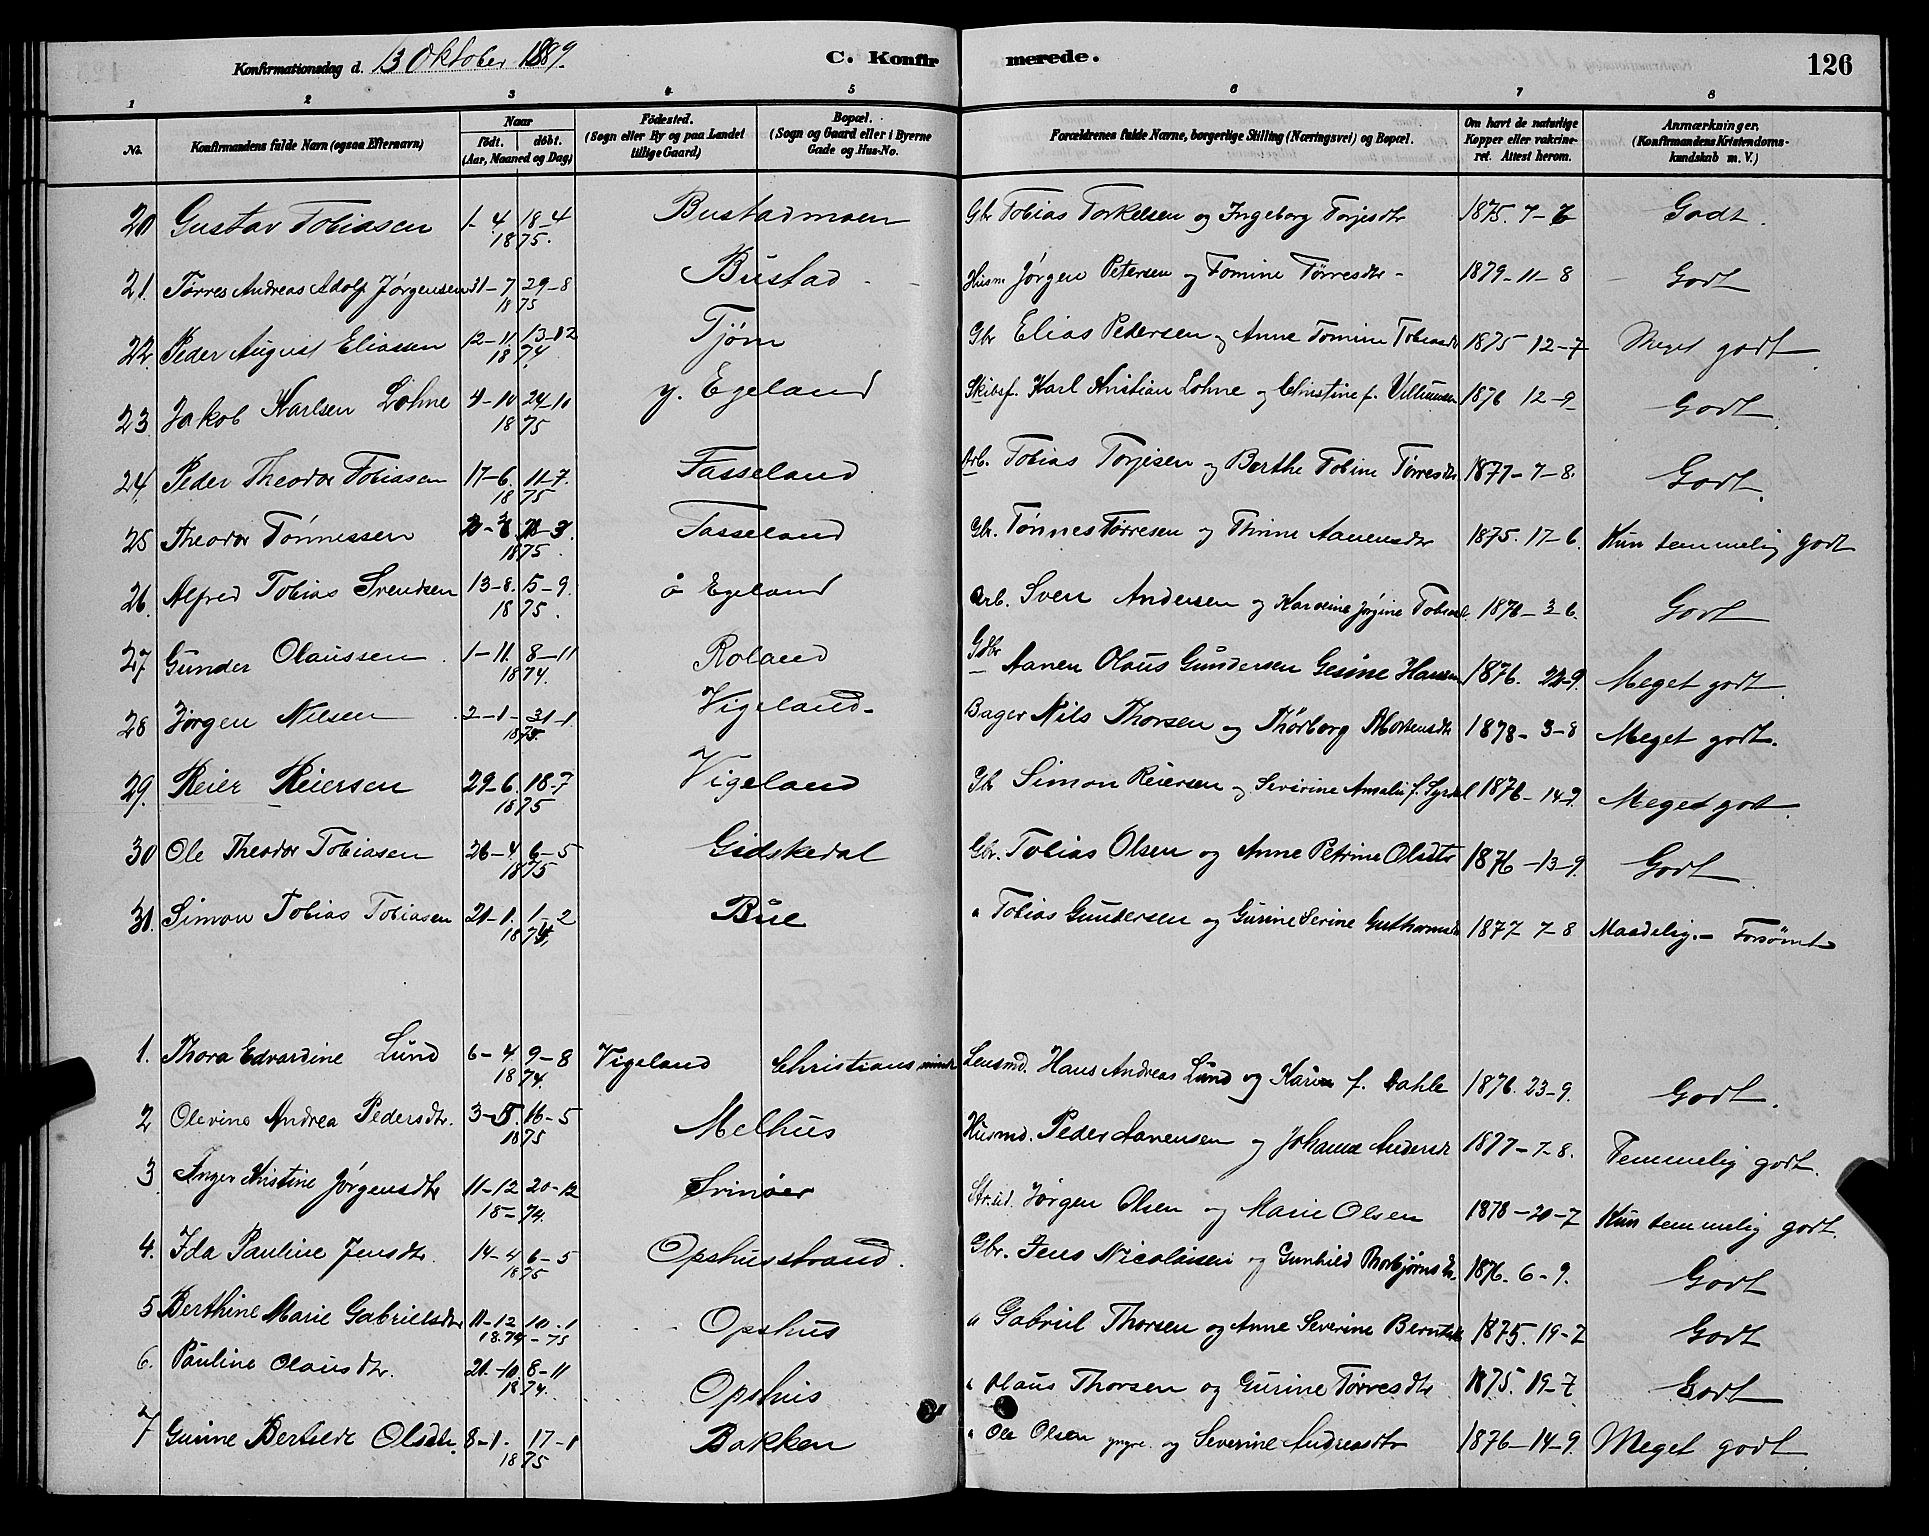 Konfirmationsdag d. 13 Oktober 1889. C. Konfirmerede. 126
1 2 3 4 5 6 7 8
No. Konfirmandens fulde Navn (ogsaa Efternavn) Naar født. døbt. (Aar, Maaned og Dag) Fødested. (Sogn eller By og paa Landet tillige Gaard) Bopæl. (Sogn og Gaard eller i Byerne Gade og Hus-No. Forældrenes fulde Navne, borgerlige Stilling (Næringsvei) og Bopæl. Om havt de naturlige Kopper eller vakcineret. Attest herom. Anmærkninger. (Konfirmandens Kristendomskundskab m. V.)
20 Gustav Tobiasen 1-4 18-4 1875. Bustadmoen Gbr Tobias Torkelsen og Ingeborg Torjesdtr 1875. 7-7 Godt.
21. Tørres Andreas Adolf Jørgensen 31-7 29-8 1875 Bustad Husm Jørgen Petersen og Tomine Tørresdtr 1879-11-8 Godt
22. Peder August Eliassen 12-11 13-12 1874. Tjøm Gbr Elias Pedersen og Anne Tomine Tobiasdtr 1875 12-7 Meget godt
23. Jakob Karlsen Lohne 4-10 24-10 1875 y. Egeland Skibsf. Karl Kristian Lohne og Christine f. Villumsen 1876 12-9 Godt.
24. Peder Theodor Tobiasen 17-6. 11-7. 1875 Fasseland Arb. Tobias Torjesen og Berthe Tobine Tørresdtr 1877-7-8. Godt.
25 Theodor Tønnessen 1875. Fasseland Gbr. Tønnes Tørresen og Thrine Aanensdtr 1875. 17-6. Kun temmelig godt
26. Alfred Tobias Svendsen 13-8. 5-9. 1875. ø Egeland Arb. Sven Andersen og Karoline Jørgine Tobiasd. 1876-3-6. Godt
27 Gunder Olaussen 1-11. 8-11 1874. Roland Gdbr Aanen Olaus Gundersen Gesine Hansen 1876. 22-9. Meget godt
28 Jørgen Nilsen 2-1- 31-1. 1875. Vigeland Bager Nils Thorsen og Thorborg Mortensdtr 1878-3-8 Meget godt.
29. Reier Reiersen 29-6. 18-7 1875 Vigeland Gbr Simon Reiersen og Severine Amalie f. Syrdal 1876-14-9. Meget godt
30 Ole Theodor Tobiasen 26-4 6-5 1875 Gidskedal Gbr. Tobias Olsen og Anne Petrine Olsdtr 1876-13-9. Godt
31. Simon Tobias Tobiasen 21-1. 1-2 Bue " Tobias Gundersen og Gurine Serine Guthormsdtr 1877 7-8 Maadelig.- Forsømt
1. Thora Edvardine Lund 6-4. 9-8 1874. Vigeland Christiansminde Lensmd. Hans Andreas Lund og Karen f. Dahle 1876. 23-9. Godt.
2 Olevine Andrea Pedersdtr. 3-5. 16-5 1875 Melhus Husmd. Peder Aanensen og Johanne Andersdtr 1877-7-8. Temmelig godt.
3. Inger Kristine Jørgensdtr 11-12 20-12 18-74. Svinøer Strid. Jørgen Olsen og Marie Olsen 1878-20-7 Kun temmelig godt.
4. Ida Pauline Jensdtr. 14-4 6-5 1875 Opshusstrand. Gbr. Jens Nicolaisen og Gunhild Thorbjørnsdtr. 1876. 6-9. Godt
5 Berthine Marie Gabrielsdtr 11-12 10-1 1874-75 Opshus " Gabriel Thorsen og Anne Severine Berntsd. 1875. 19-7 Godt
6. Pauline Olausdtr. 21-10. 8-11 1874. Opshus " Olaus Thorsen og Gurine Tørresdtr 1875. 19-7 Godt
7 Gurine Bertilde Olsdtr. 8-1. 17-1 1875 Bakken " Ole Olsen yngre. og Severine Andreasdtr 1876-14-9. Meget godt